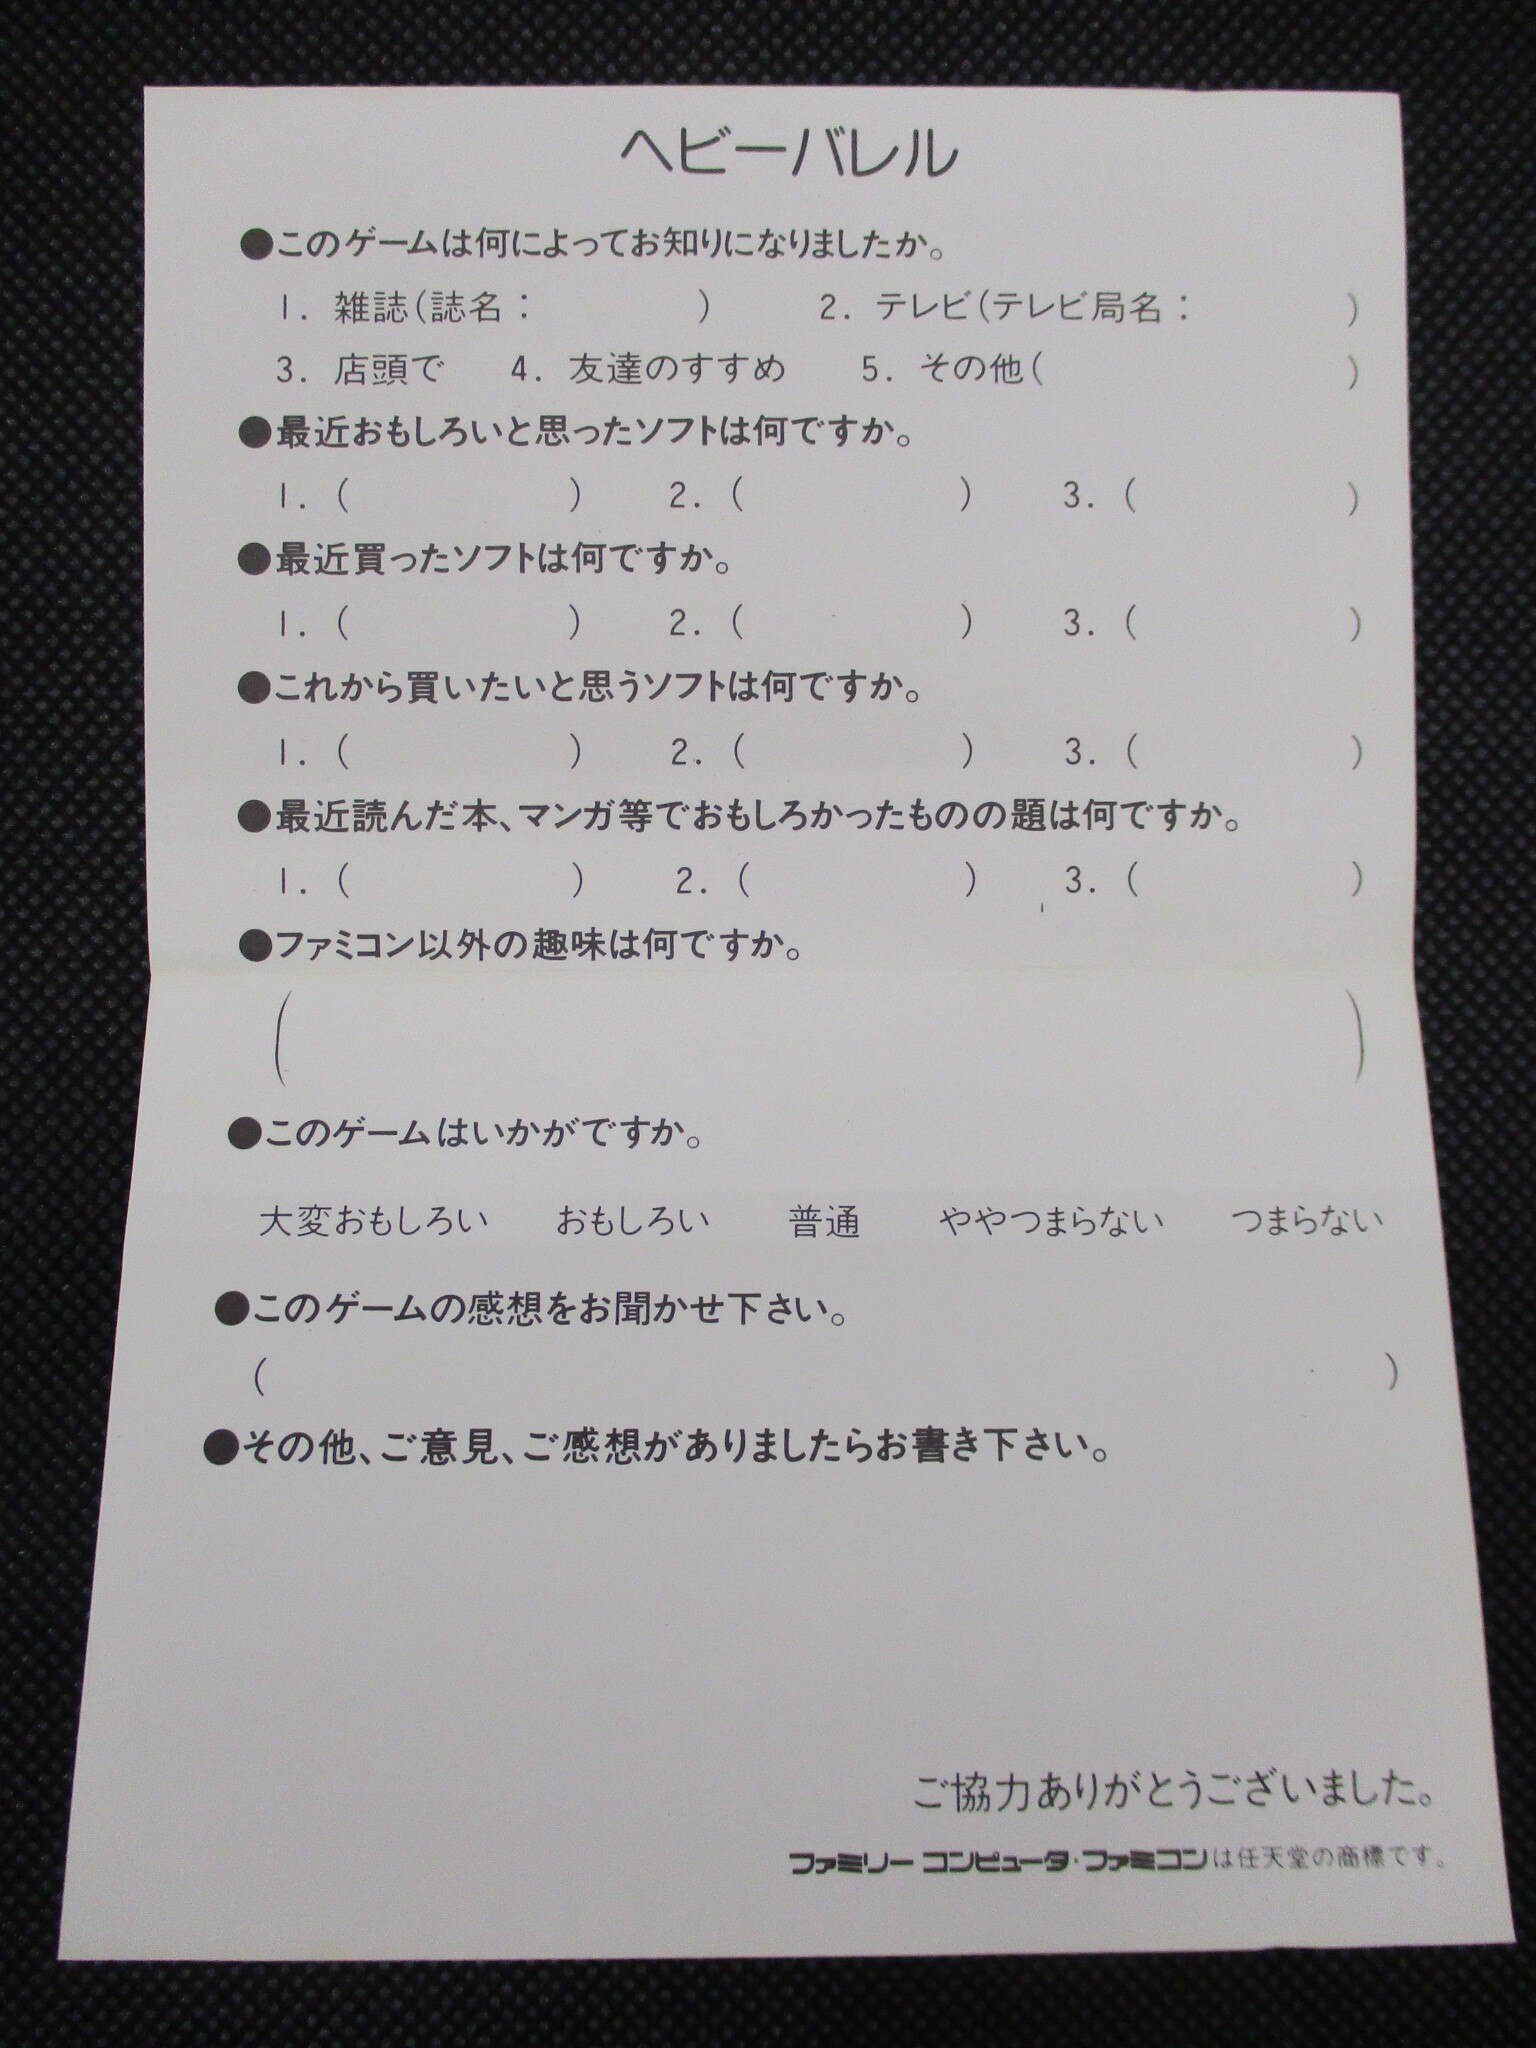 ヘビーバレル
●このゲームは何によってお知りになりましたか。
1. 雑誌(誌名： ) 2. テレビ(テレビ局名： )
3. 店頭で 4. 友達のすすめ 5. その他( )
●最近おもしろいと思ったソフトは何ですか。
1. ( ) 2. ( ) 3. ( )
●最近買ったソフトは何ですか。
1. ( ) 2. ( ) 3. ( )
●これから買いたいと思うソフトは何ですか。
1. ( ) 2. ( ) 3. ( )
●最近読んだ本、マンガ等でおもしろかったものの題は何ですか。
1. ( ) 2. ( ) 3. ( )
●ファミコン以外の趣味は何ですか。
( )
●このゲームはいかがですか。
大変おもしろい おもしろい 普通 ややつまらない つまらない
●このゲームの感想をお聞かせ下さい。
( )
●その他、ご意見、ご感想がありましたらお書き下さい。
ご協力ありがとうございました。
ファミリーコンピュータ・ファミコンは任天堂の商標です。